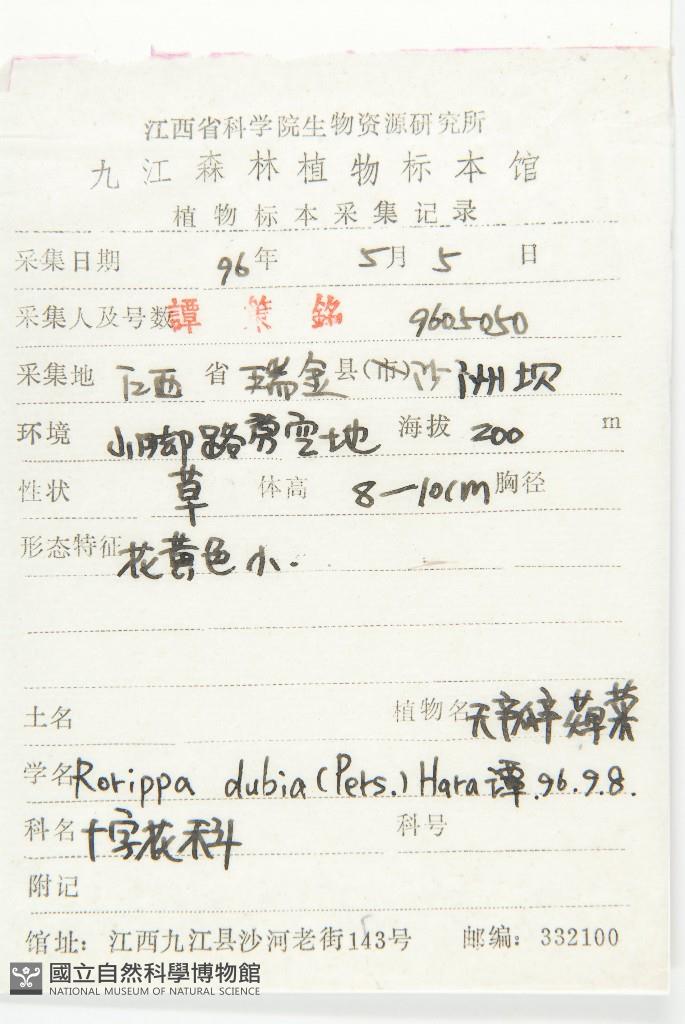 江西省科学院生物资源研究所
九江森林植物标本馆
植物标本采集记录
采集日期 96年 5月 5 日
采集人及号数 譚策銘 9605050
采集地 江西 省 瑞金 县(市) 沙洲坝
环境 山脚路旁空地 海拔 200 m
性状 草 体高 8—10cm 胸径
形态特征 花黄色小.
土名 植物名 无瓣蔊菜
学名 Rorippa dubia (Pers.) Hara 譚.96.9.8.
科名 十字花科 科号
附记
馆址: 江西九江县沙河老街143号 邮编: 332100
國立自然科學博物館
NATIONAL MUSEUM OF NATURAL SCIENCE